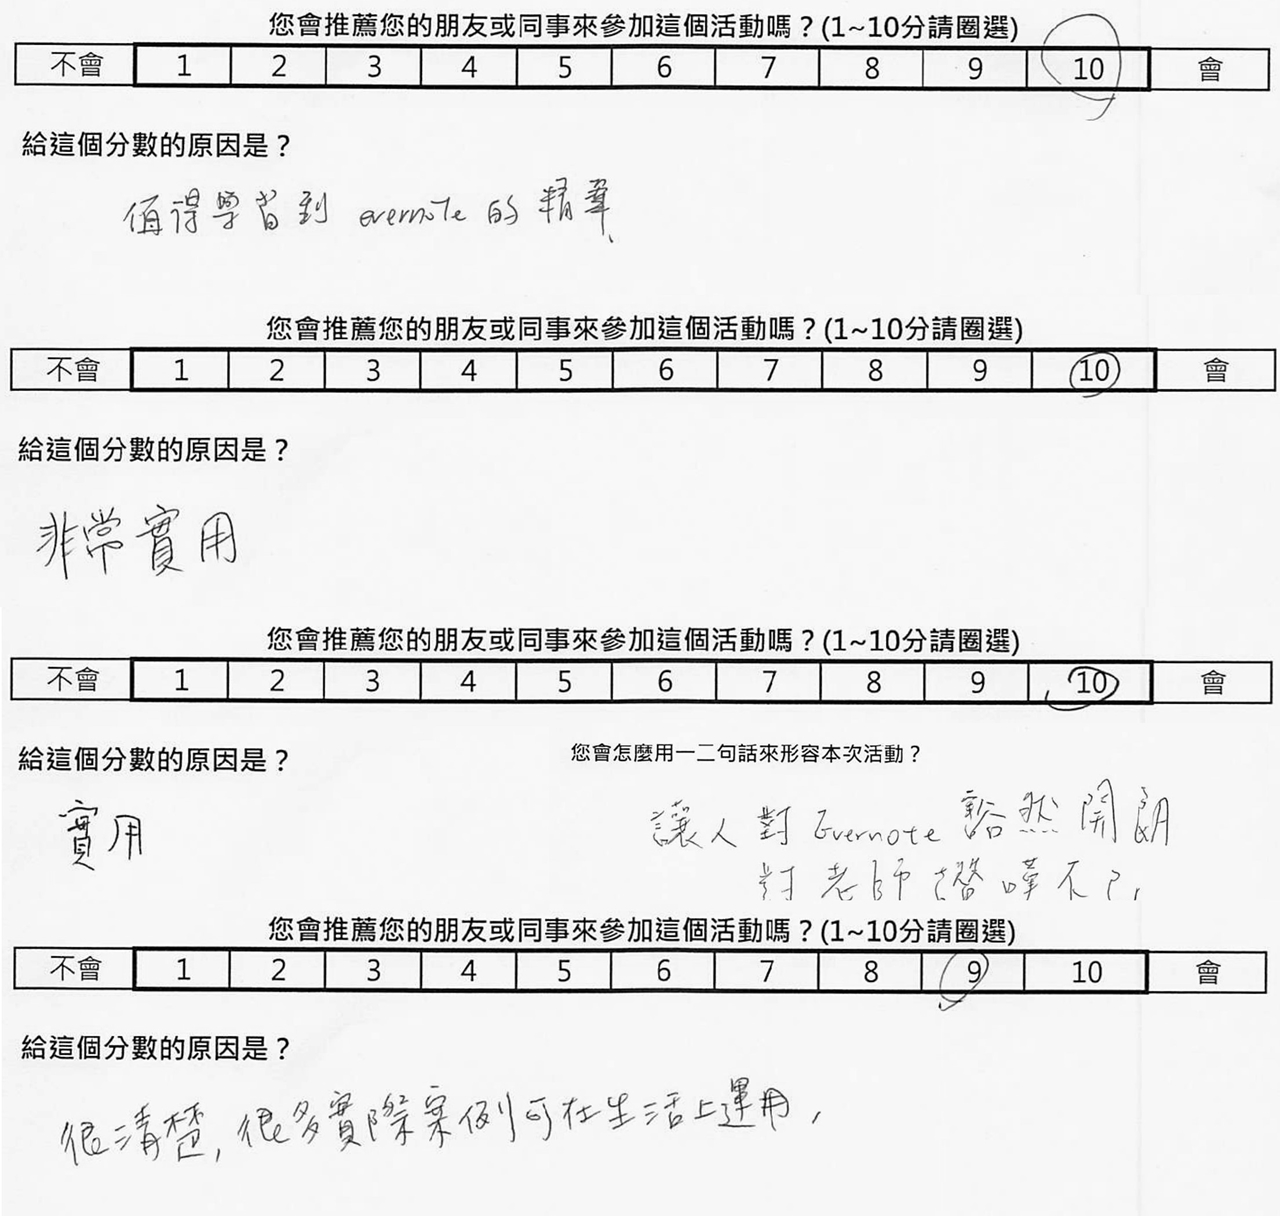 您會推薦您的朋友或同事來參加這個活動嗎？(1~10分請圈選)
不會 1 2 3 4 5 6 7 8 9 10 會
給這個分數的原因是？
值得學習到 evernote 的精華
您會推薦您的朋友或同事來參加這個活動嗎？(1~10分請圈選)
不會 1 2 3 4 5 6 7 8 9 10 會
給這個分數的原因是？
非常實用
您會推薦您的朋友或同事來參加這個活動嗎？(1~10分請圈選)
不會 1 2 3 4 5 6 7 8 9 10 會
給這個分數的原因是？
實用
您會怎麼用一二句話來形容本次活動？
讓人對 Evernote 豁然開朗
對老師讚嘆不已,
您會推薦您的朋友或同事來參加這個活動嗎？(1~10分請圈選)
不會 1 2 3 4 5 6 7 8 9 10 會
給這個分數的原因是？
很清楚, 很多實際案例可在生活上運用,